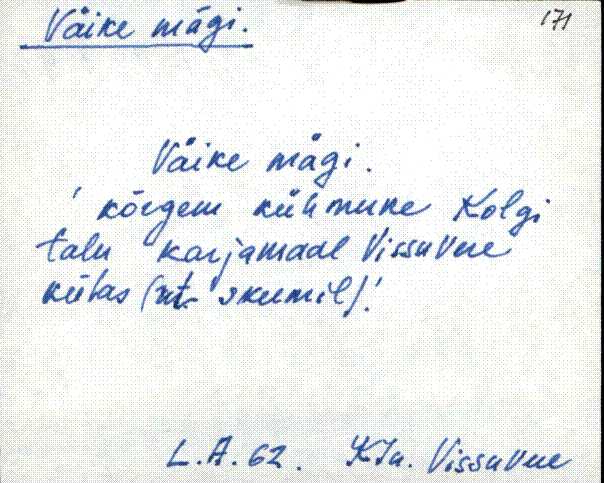 Väike mägi.
171
Väike mägi.
' kõrgem kühmuke Kolgi
talu karjamaal Vissuvere
külas (vt. skeemil)!
L.A. 62. KJn. Vissuvere